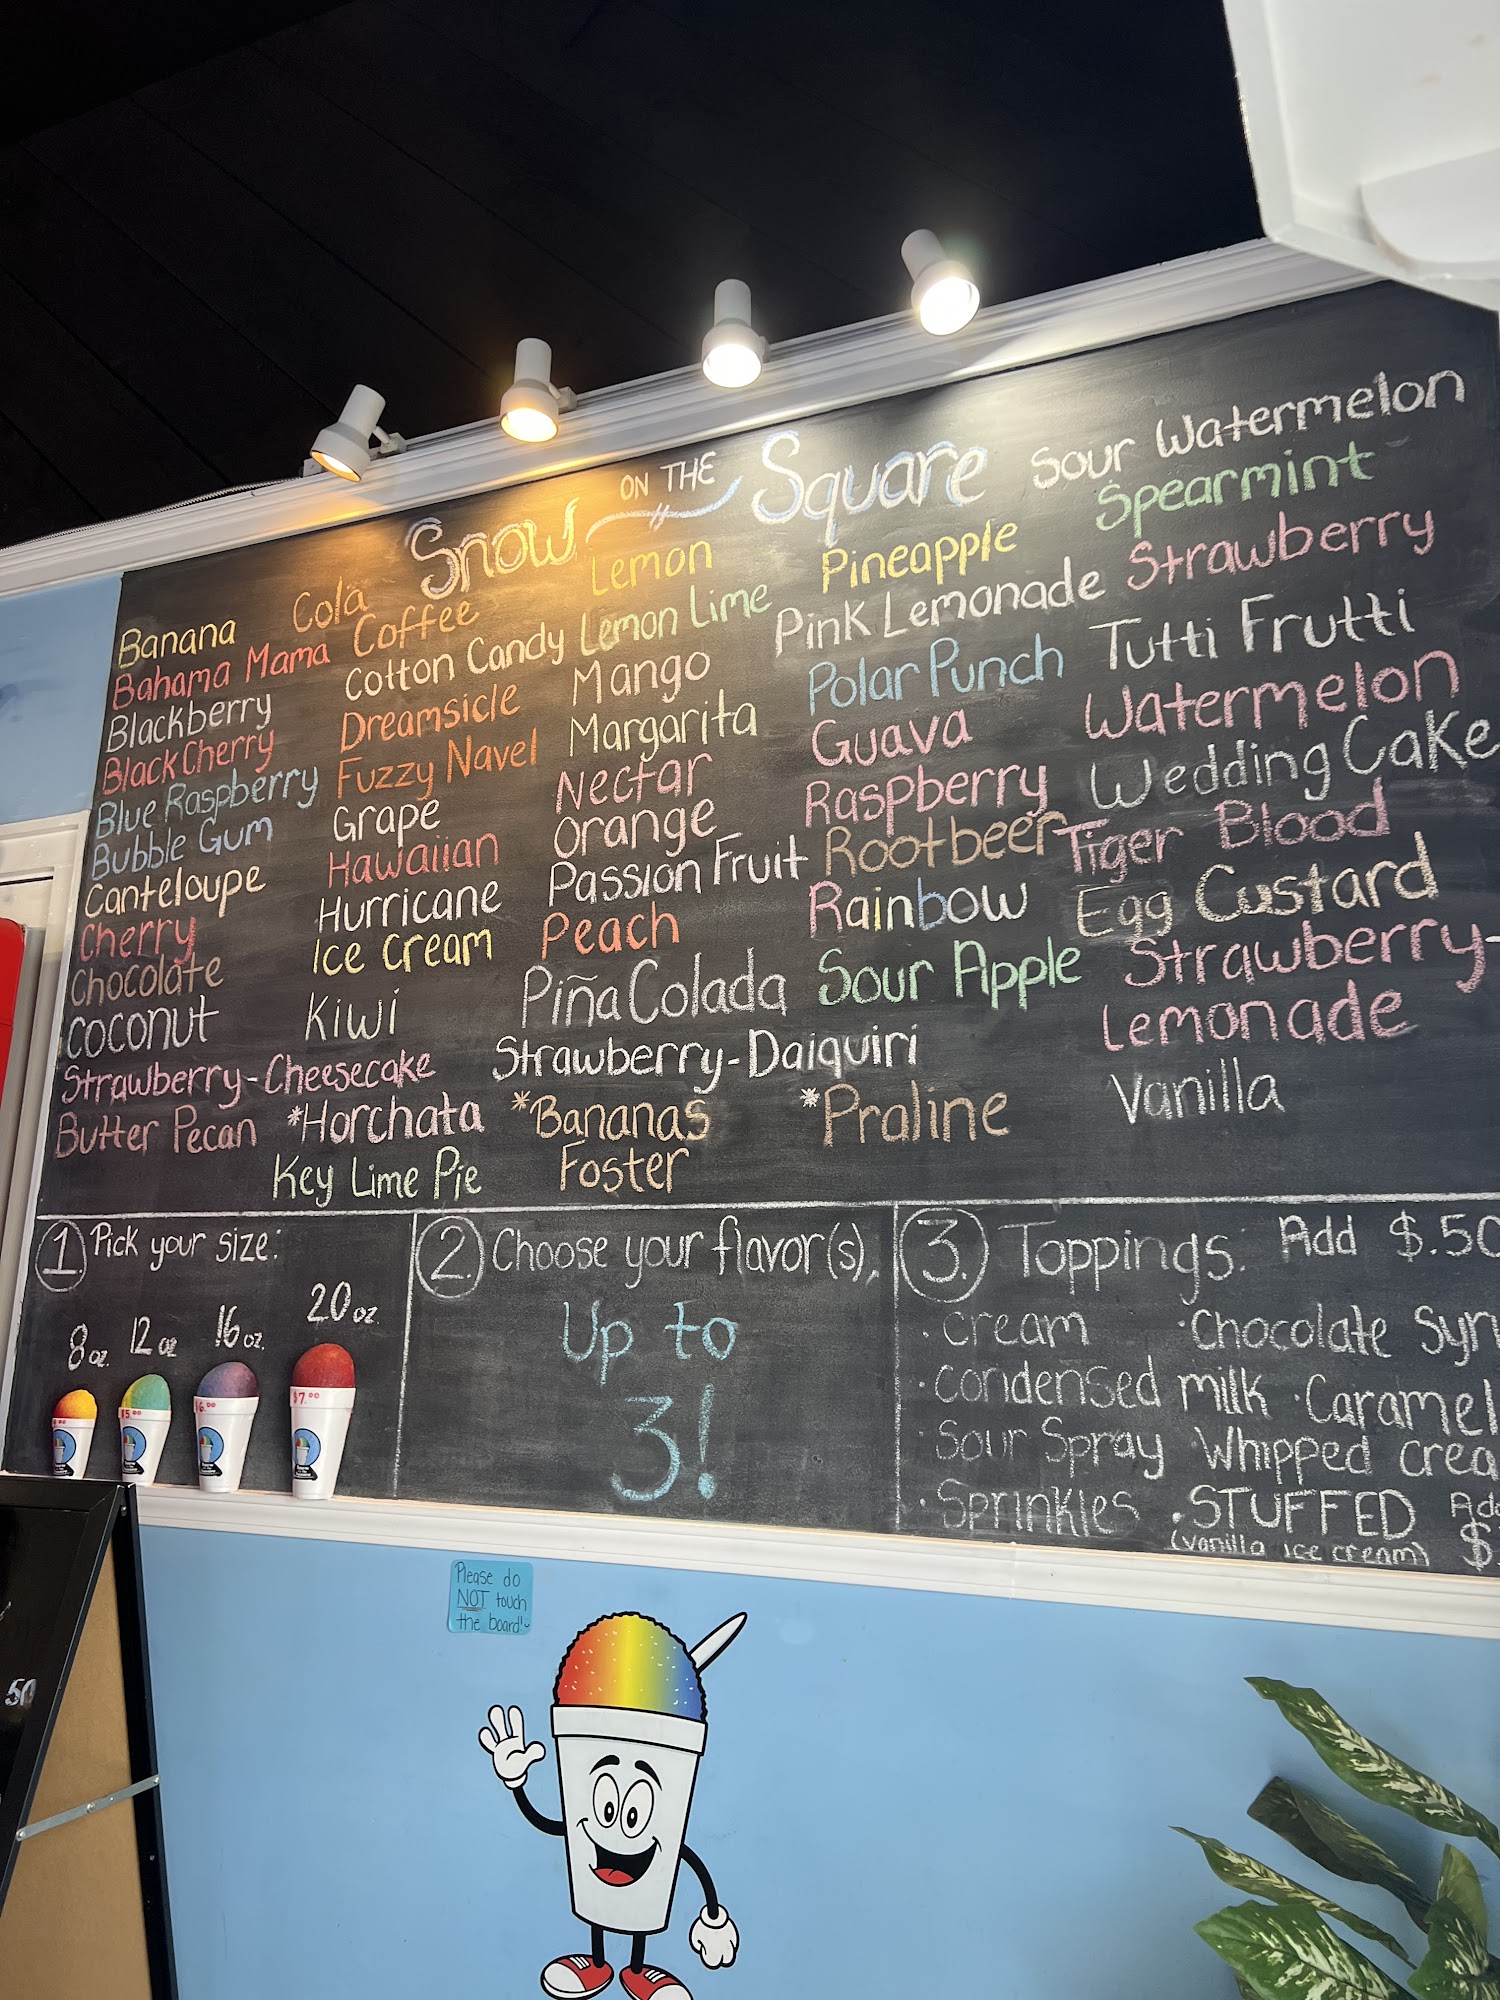 Snow ON THE Square
Banana
Bahama Mama
Blackberry
Black Cherry
Blue Raspberry
Bubble Gum
Canteloupe
Cherry
Chocolate
Coconut
Strawberry-Cheesecake
Butter Pecan
Cola
Coffee
Cotton Candy
Dreamsicle
Fuzzy Navel
Grape
Hawaiian
Hurricane
Ice Cream
Kiwi
*Horchata
Key Lime Pie
Lemon
Lemon Lime
Mango
Margarita
Nectar
Orange
Passion Fruit
Peach
Piña Colada
Strawberry-Daiquiri
*Bananas
Foster
Pineapple
Pink Lemonade
Polar Punch
Guava
Raspberry
Rootbeer
Rainbow
Sour Apple
*Praline
Sour Watermelon
Spearmint
Strawberry
Tutti Frutti
Watermelon
Wedding Cake
Tiger Blood
Egg Custard
Strawberry-
Lemonade
Vanilla
1. Pick your size:
8 oz. 12 oz 16 oz. 20 oz.
$5.00 $6.00 $7.00
2. Choose your flavor(s).
Up to
3!
3. Toppings: Add $.50
· Cream · Chocolate Syr
· Condensed milk · Caramel
· Sour Spray · Whipped Crea
· Sprinkles · STUFFED Add
(vanilla ice cream) $
Please do
NOT touch
the board!
50